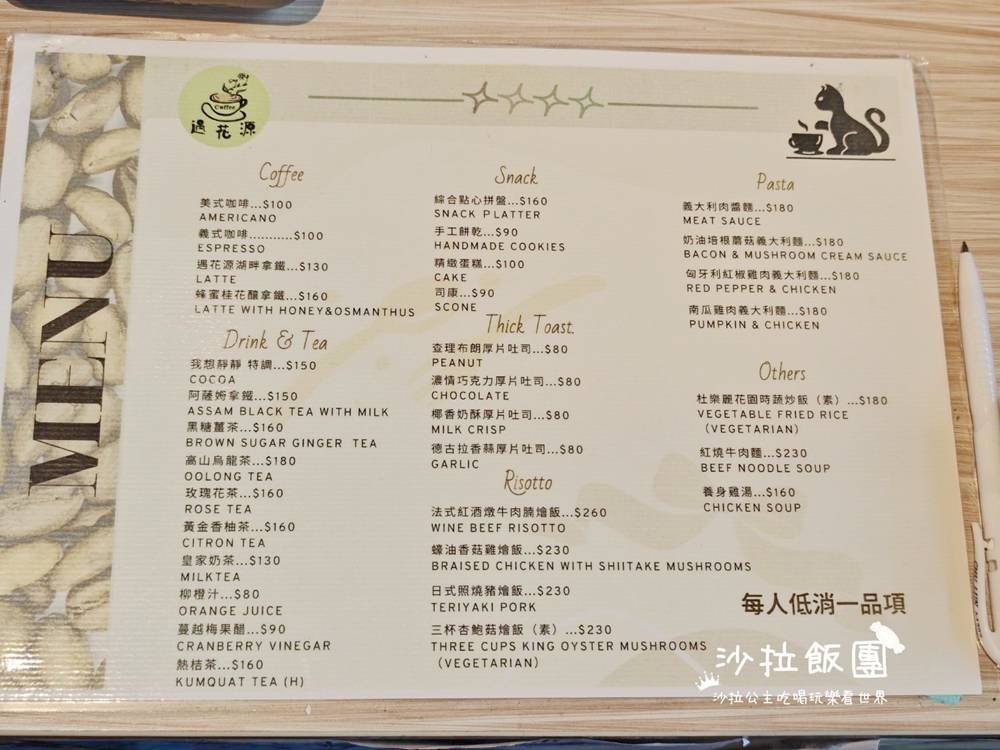 MENU
Coffee
遇花源
Coffee
美式咖啡...$100
AMERICANO
義式咖啡...........$100
ESPRESSO
遇花源湖畔拿鐵...$130
LATTE
蜂蜜桂花釀拿鐵...$160
LATTE WITH HONEY&OSMANTHUS
Drink & Tea
我想靜靜 特調...$150
COCOA
阿薩姆拿鐵...$150
ASSAM BLACK TEA WITH MILK
黑糖薑茶...$160
BROWN SUGAR GINGER TEA
高山烏龍茶...$180
OOLONG TEA
玫瑰花茶...$160
ROSE TEA
黃金香柚茶...$160
CITRON TEA
皇家奶茶...$130
MILKTEA
柳橙汁...$80
ORANGE JUICE
蔓越梅果醋...$90
CRANBERRY VINEGAR
熱桔茶...$160
KUMQUAT TEA (H)
Snack
綜合點心拼盤...$160
SNACK PLATTER
手工餅乾...$90
HANDMADE COOKIES
精緻蛋糕...$100
CAKE
司康...$90
SCONE
Thick Toast.
查理布朗厚片吐司...$80
PEANUT
濃情巧克力厚片吐司...$80
CHOCOLATE
椰香奶酥厚片吐司...$80
MILK CRISP
德古拉香蒜厚片吐司...$80
GARLIC
Risotto
法式紅酒燉牛肉腩燴飯...$260
WINE BEEF RISOTTO
蠔油香菇雞燴飯...$230
BRAISED CHICKEN WITH SHIITAKE MUSHROOMS
日式照燒豬燴飯...$230
TERIYAKI PORK
三杯杏鮑菇燴飯（素）...$230
THREE CUPS KING OYSTER MUSHROOMS
（VEGETARIAN）
Pasta
義大利肉醬麵...$180
MEAT SAUCE
奶油培根蘑菇義大利麵...$180
BACON & MUSHROOM CREAM SAUCE
匈牙利紅椒雞肉義大利麵...$180
RED PEPPER & CHICKEN
南瓜雞肉義大利麵...$180
PUMPKIN & CHICKEN
Others
杜樂麗花園時蔬炒飯（素）...$180
VEGETABLE FRIED RICE
（VEGETARIAN）
紅燒牛肉麵...$230
BEEF NOODLE SOUP
養身雞湯...$160
CHICKEN SOUP
每人低消一品項
沙拉飯團
沙拉公主吃喝玩樂看世界